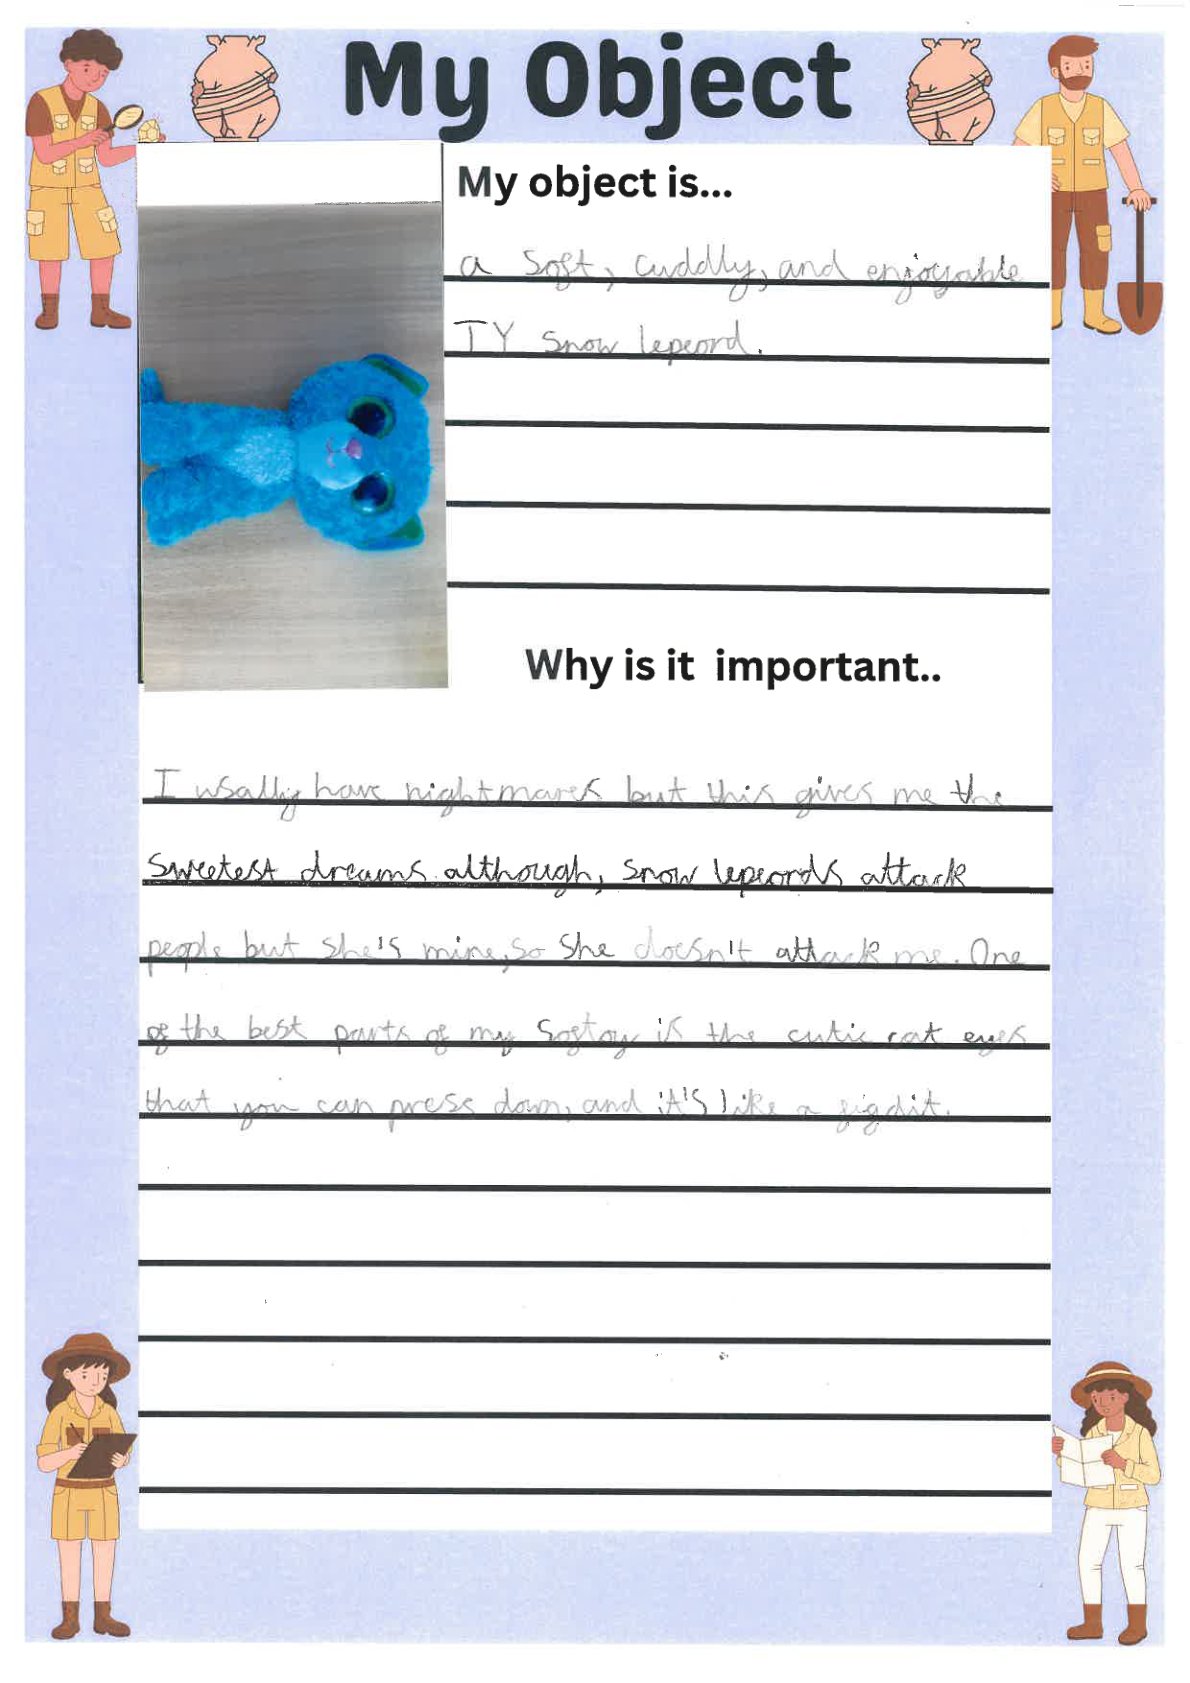 My Object
My object is...
a soft, cuddly, and enjoyable
TY snow lepeord.
Why is it important..
I usally have nightmares but this gives me the
sweetest dreams. although, snow lepeords attack
people but she's mine, so she doesn't attack me. One
of the best parts of my softoy is the cutie cat eyes
that you can press down, and it's like a figdit.